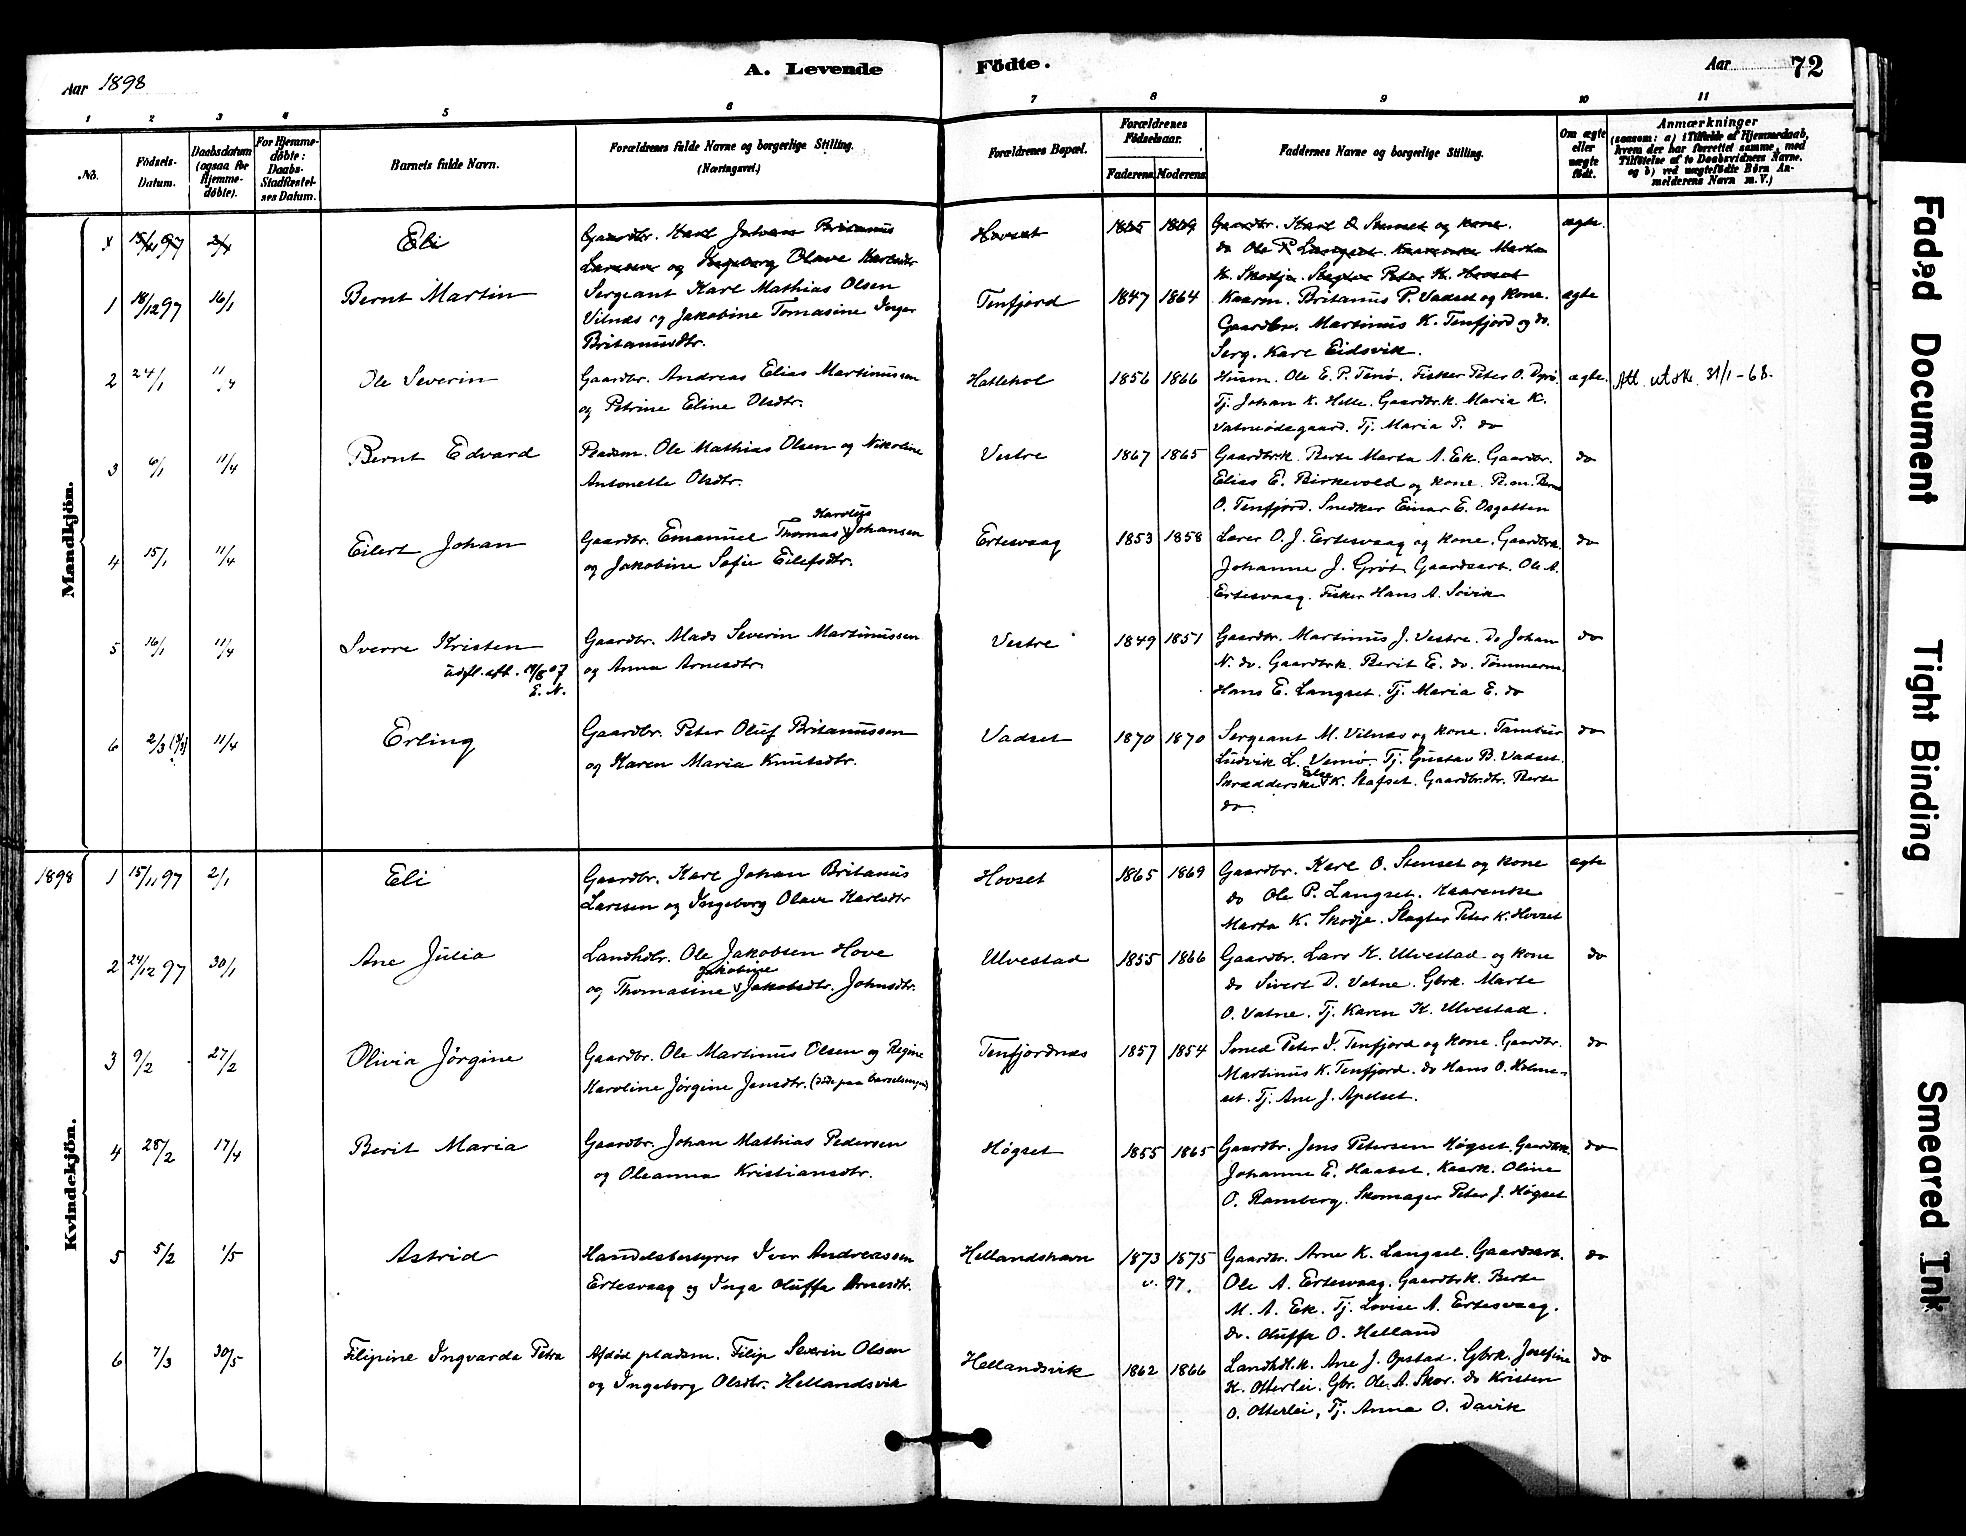 Aar 1898
A. Levende
Födte.
Aar
72
1 2 3 4 5 6 7 8 9 10 11
No.
Födsels-Datum.
Daabsdatum (ogsaa for Hjemme-döbte).
For Hjemme-döbte: Daabs-Stadfæstel-ses Datum.
Barnets fulde Navn.
Forældrenes fulde Navne og borgerlige Stilling.
(Næringsvei.)
Forældrenes Bopæl.
Forældrenes Födselsaar.
Faderens. Moderens.
Faddernes Navne og borgerlige Stilling.
Om ægte eller uægte födt.
Anmærkninger
(saasom: a) i Tilfælde af Hjemmedaab, hvem der har forrettet samme, med Tilföielse af to Daabsvidners Navne, og b) ved uægtefödte Börn Anmelderens Navn m. V.)
Mandkjön.
15/11 97 2/1 Eli Gaardbr. Karl Johan Britanus Hovset 1865 1869 Gaardbr. Karl O Stenset og kone. ægte
Larssen og Ingeborg Olave Karlsdtr do Ole P Langset Kaarenke Marta
K. Skodje. Slagter Peter K. Hovset
1 18/12 97 16/1 Bernt Martin Sergeant Karl Mathias Olsen Tenfjord 1847 1864 Kaarm. Britanus P. Vadset og kone. ægte
Vilnæs og Jakobine Tomasine Inger Gaardbr. Martinus K. Tenfjord og do.
Britanusdtr. Serg. Karl Eidsvik.
2 24/1 11/4 Ole Severin Gaardbr. Andreas Elias Martinussen Hatlehol 1856 1866 Husm. Ole E. P. Tenø. Fisker Peter O. Dyrø. ægte. Att. utstk. 31/1-68.
og Petrine Eline Olsdtr. Tj. Johan K. Helle. Gaardbr.k. Maria K.
Vatneødegaard. Tj. Maria P. do
3 6/1 11/4 Bernt Edvard Pladsm. Ole Mathias Olsen og Nikoline Vestre 1867 1865 Gaardbr.k. Berte Marta A. Ek. Gaardbr. do
Antonette Olsdtr. Elias E. Birkevold og kone. P.m. Bernt
O. Tenfjord. Snedker Einar E. Osgotten
4 15/1 11/4 Eilert Johan Gaardbr. Emanuel Thomas Karolus Johansen Ertesvaag 1853 1858 Lærer O. J. Ertesvaag og kone. Gaardbrk. do
og Jakobine Sofie Eilefsdtr. Johanne J. Grøt. Gaardsarb. Ole A.
Ertesvaag. Fisker Hans A. Søvik
5 16/1 11/4 Sverre Kristen Gaardbr. Mads Severin Martinussen Vestre 1849 1851 Gaardbr. Martinus J. Vestre. Do Johan do
Udfl. att. 07 og Anna Arnesdtr. N. do. Gaardbrk. Berit E. do. Tømmerm.
E. N. Hans E. Langset. Tj. Maria E. do
6 2/3 11/4 Erling Gaardbr. Peter Oluf Britanussen Vadset 1870 1870 Sergeant M. Vilnæs og kone. Tambur do
og Karen Maria Knutsdtr. Ludvik L. Vemø. Tj. Gustav B. Vadset.
Skrædderske Else K. Stafset. Gaardbr.dtr. Berte
do
Kvindekjön.
1898 1 15/11 97 2/1 Eli Gaardbr. Karl Johan Britanus Hovset 1865 1869 Gaardbr. Karl O. Stenset og kone ægte
Larssen og Ingeborg Olave Karlsdtr do Ole P. Langset. Kaarenke
Marta K. Skodje. Slagter Peter K. Hovset
2 24/12 97 30/1 Ane Julia Landhdlr. Ole Jakobsen Hove Ulvestad 1855 1866 Gaardbr. Lars K. Ulvestad og kone do
og Thomasine Jakobine Jakobsdtr. Johnsdtr. do Sivert D. Vatne. Gbrk. Marte
O. Vatne. Tj. Karen K. Ulvestad.
3 9/2 27/2 Olivia Jørgine Gaardbr. Ole Martinus Olsen og Regine Tenfjordnæs 1857 1854 Smed Peter I. Tenfjord og kone. Gaardbr. do
Karoline Jørgine Jensdtr. (døde paa barselsengen) Martinus K. Tenfjord. do Hans O. Holme-
set. Tj. Ane J. Apelset.
4 28/2 17/4 Berit Maria Gaardbr. Johan Mathias Pedersen Høgset 1855 1865 Gaardbr. Jens Petersen Høgset. Gaardbrk. do
og Oleanna Kristiansdtr. Johanne E. Haaset. Kaark. Oline
O. Ramberg. Skomager Peter J. Høgset
5 5/2 1/5 Astrid Handelsbestyrer Iver Andreassen Hellandshavn 1873 1875 Gaardbr. Arne K. Langset. Gaardsarb. do
Ertesvaag og Inga Oluffa Arnesdtr. v. 97. Ole A. Ertesvaag. Gaardbrk. Berte
M. A. Ek. Tj. Lovise A. Ertesvaag.
do. Oluffa O. Helland
6 7/3 30/5 Filipine Ingvarda Petra Afdød pladsm. Filip Severin Olsen Hellandsvik 1862 1866 Landhdl.k. Ane J. Opstad. Gbrk. Josefine do
og Ingeborg Olsdtr. Hellandsvik K. Otterlei. Gbr. Ole A. Skor. do Kristen
O. Otterlei, Tj. Anna O. Davik
Faded Document
Tight Binding
Smeared Ink